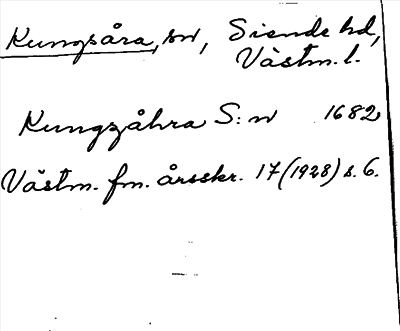 Kungsåra, sn, Siende hd,
Västm. l.
Kungzåhra S:n 1682
Västm. fm. årsskr. 17 (1928) s. 6.